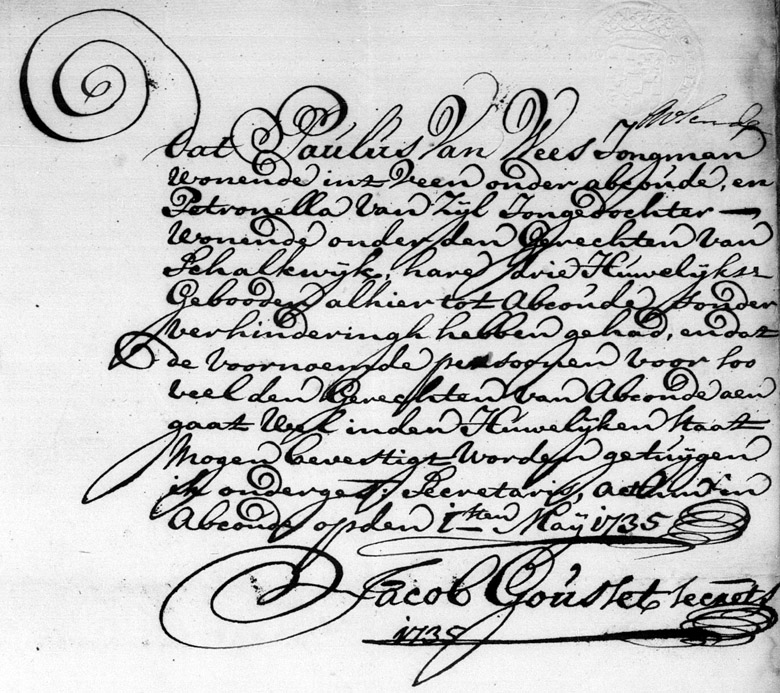 Dat Paulus Van Wees Jongman
Wonende int Veen onder abcoúde, en
Petronella Van Zÿl Jongedochter —
Wonende onder den Gerechten van
Schalkwÿk, hare drie Huwelÿks
Gebooden alhier tot Abcoúde sonder
verhinderingh hebben gehad, en dat
de voornoemde persoonen voor soo
veel den Gerechten van Abcoude aen
gaat Wel in den Huwelÿken Staat
Mogen bevestigt worden getuÿgen
ik onderges: Secretaris, actum in
Abcoude op den 1sten Maÿ 1735
Jacob Goússet secrets
1735